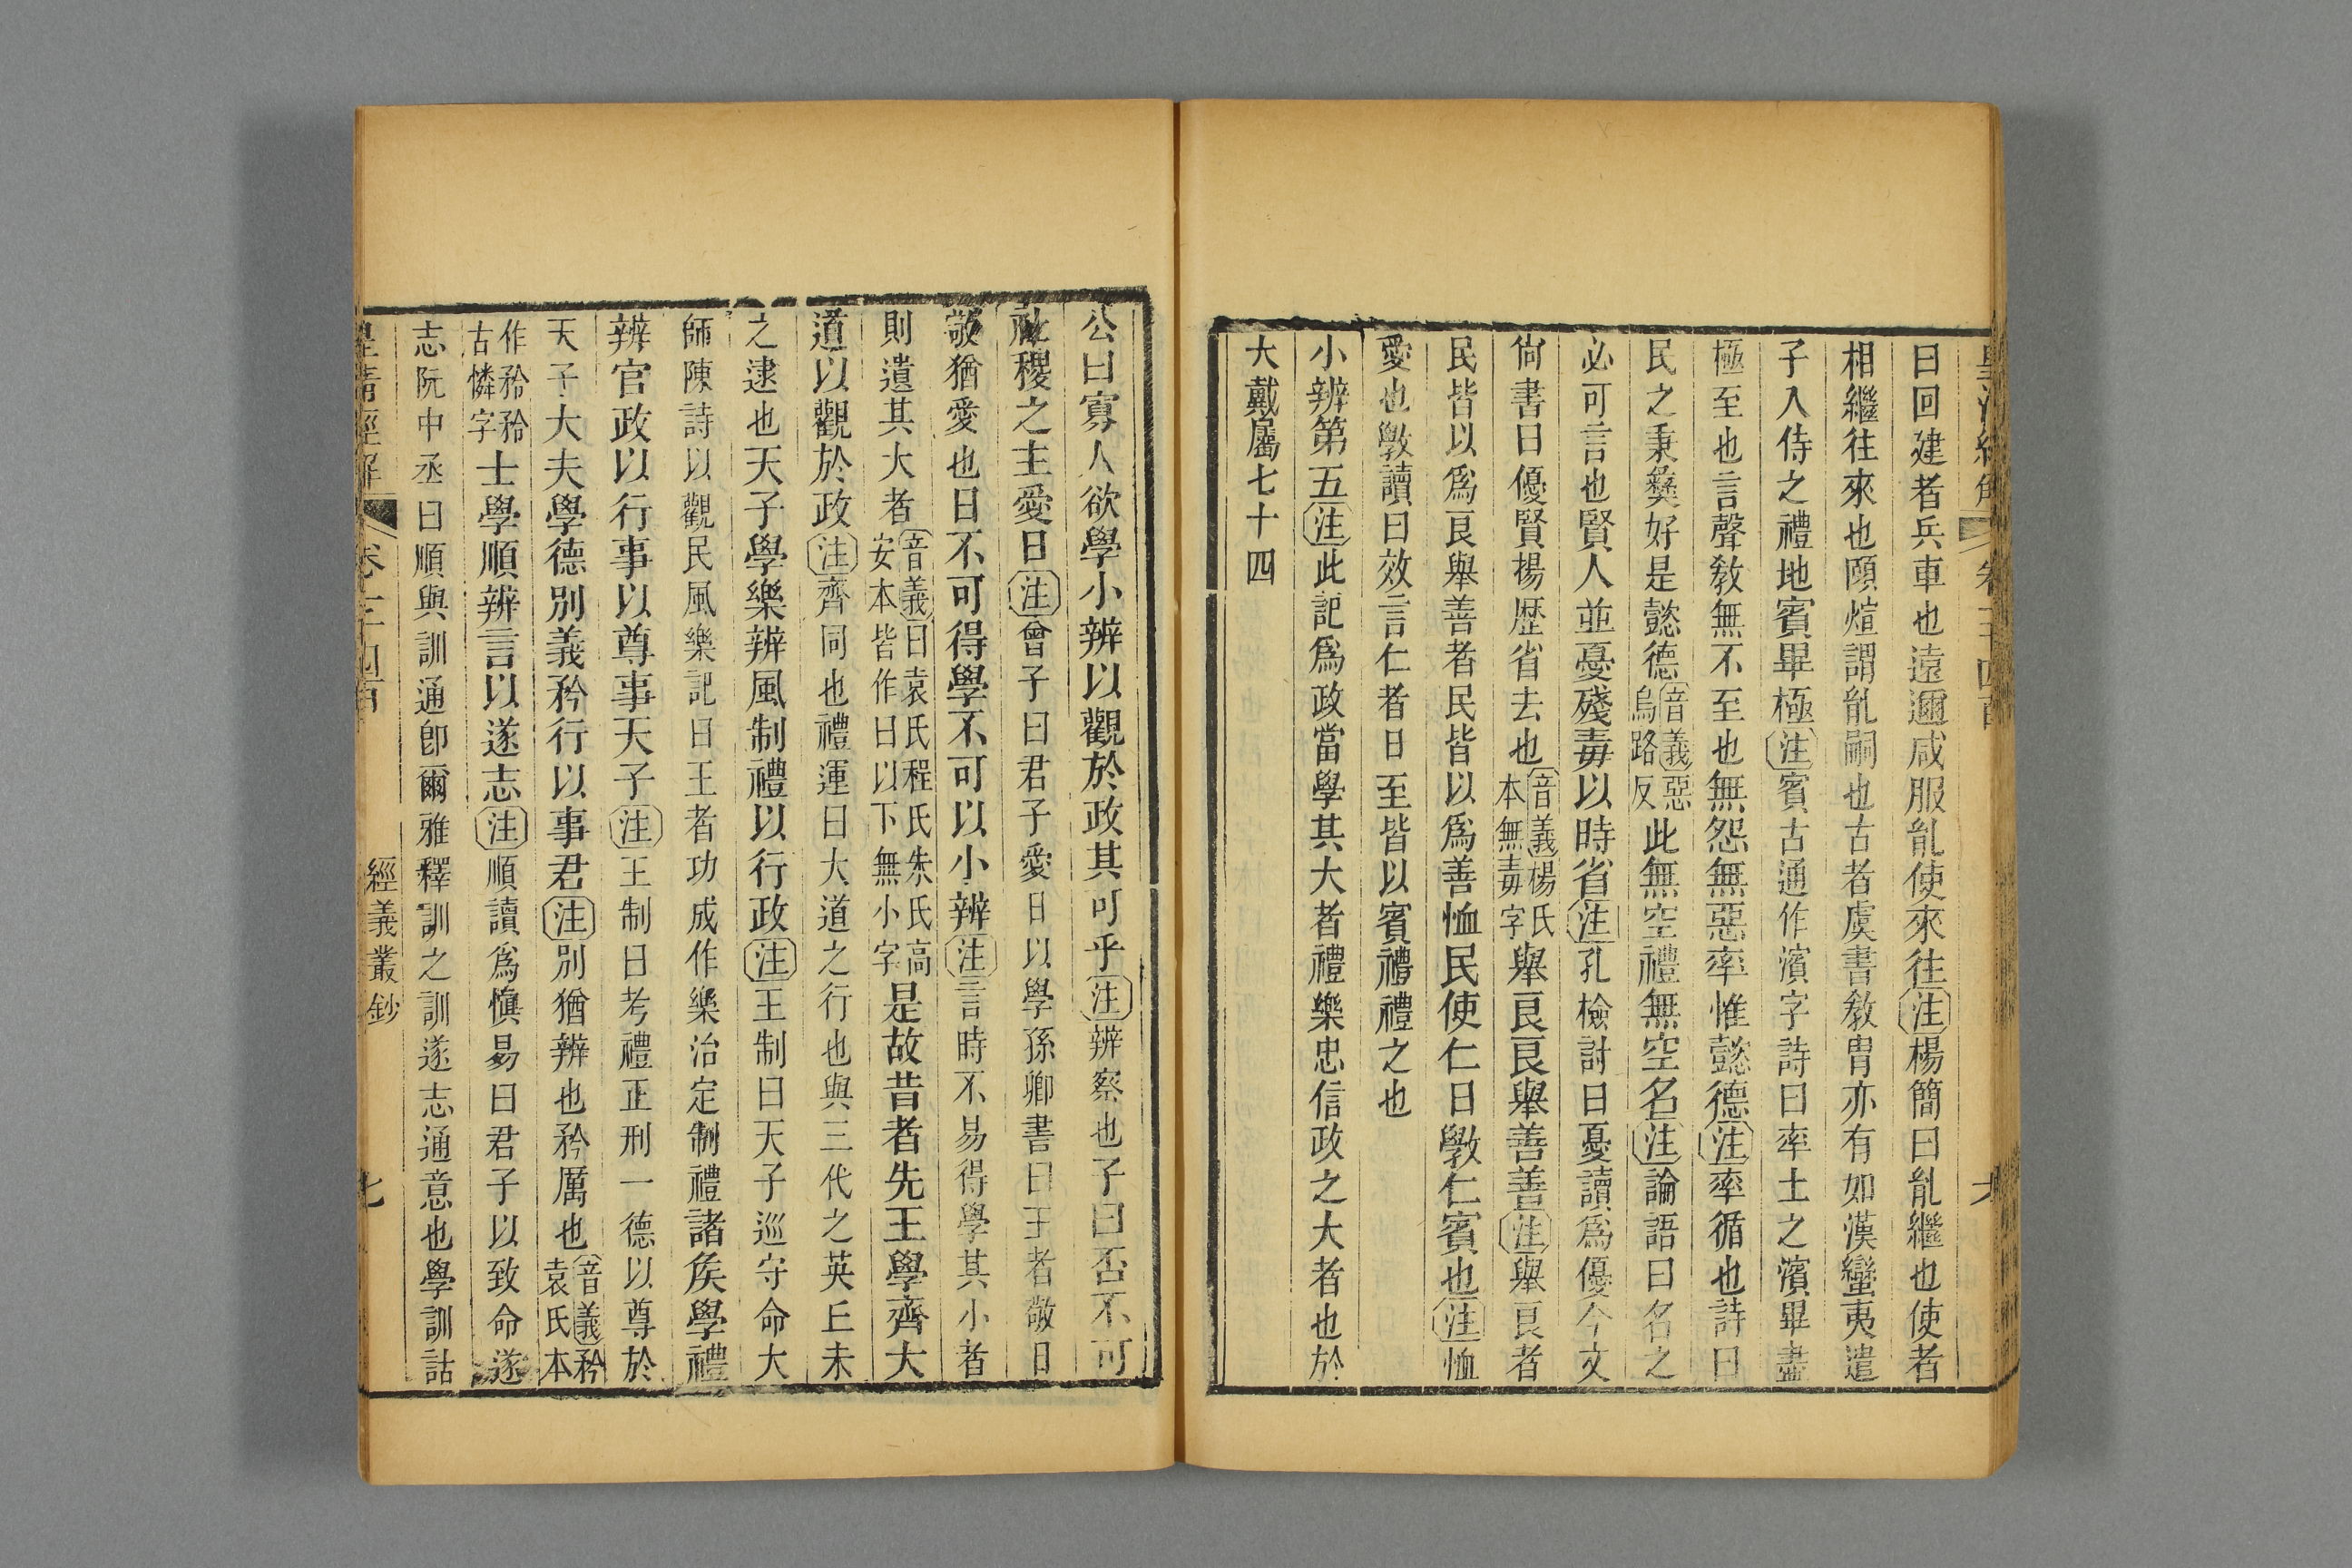 曰回建者兵車也遠邇咸服胤使來往注楊簡曰胤繼也使者
相繼往來也頤煊謂胤嗣也古者虞書教胄亦有如漢蠻夷遣
子入侍之禮地賓畢極注賓古通作濱字詩曰率土之濱畢盡
極至也言聲教無不至也無怨無惡率惟懿德注率循也詩曰
民之秉彝好是懿德音義惡烏路反此無空禮無空名注論語曰名之
必可言也賢人並憂殘毒以時省注孔檢討曰憂讀為優今文
尙書曰優賢揚歷省去也音義楊氏本無毒字舉良良舉善善注舉良者
民皆以爲良舉善者民皆以爲善恤民使仁日斆仁賓也注恤
愛也斆讀曰效言仁者日至皆以賓禮禮之也
小辨第五注此記爲政當學其大者禮樂忠信政之大者也於
大戴屬七十四
公曰寡人欲學小辨以觀於政其可乎注辨察也子曰否不可
社稷之主愛日注曾子曰君子愛日以學孫卿書曰王者敬日
敬猶愛也日不可得學不可以小辨注言時不易得學其小者
則遺其大者音義曰袁氏程氏朱氏高安本皆作曰以下無小字是故昔者先王學齊大
道以觀於政注齊同也禮運曰大道之行也與三代之英丘未
之逮也天子學樂辨風制禮以行政注王制曰天子巡守命大
師陳詩以觀民風樂記曰王者功成作樂治定制禮諸矦學禮
辨官政以行事以尊事天子注王制曰考禮正刑一德以尊於
天子大夫學德別義矜行以事君注別猶辨也矜厲也音義矜袁氏本
作矝矝古憐字士學順辨言以遂志注順讀爲愼易曰君子以致命遂
志阮中丞曰順與訓通卽爾雅釋訓之訓遂志通意也學訓詁
皇清經解 卷 經義叢鈔